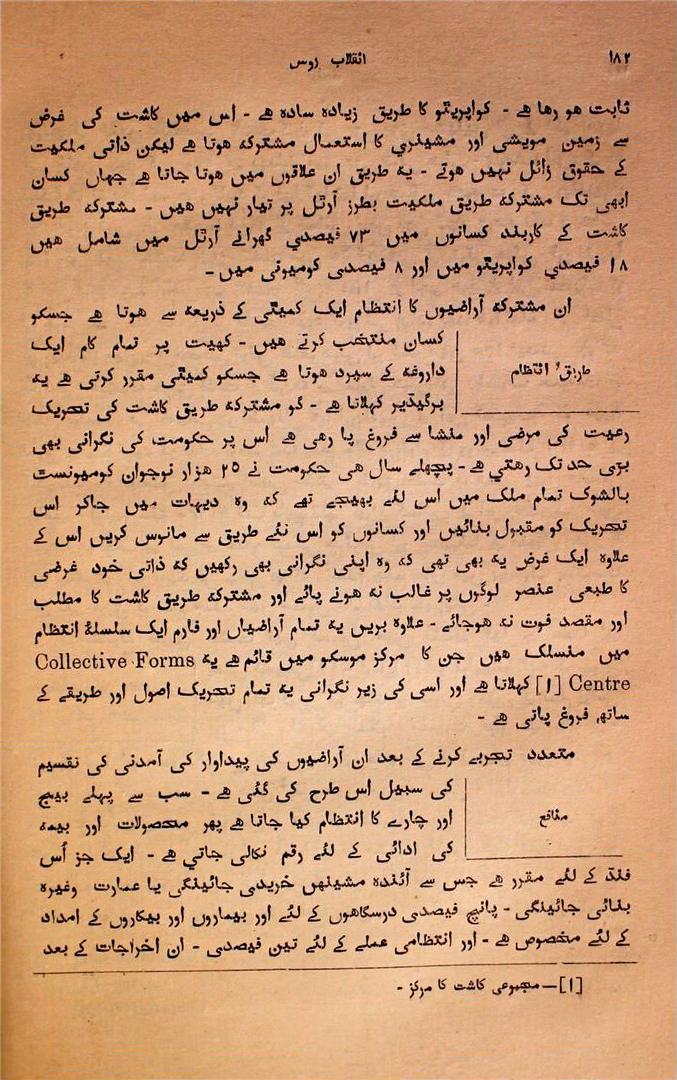 ۱۸۲
انقلاب روس
ثابت ہو رہا ہے - کواپریٹو کا طریق زیادہ سادہ ہے - اس میں کاشت کی غرض
سے زمین مویشی اور مشینری کا استعمال مشترکہ ہوتا ہے لیکن ذاتی ملکیت
کے حقوق زائل نہیں ہوتے - یہ طریق ان علاقوں میں ہوتا جاتا ہے جہاں کسان
ابھی تک مشترکہ طریق ملکیت بطرز آرٹل پر تیار نہیں ہیں - مشترکہ طریق
کاشت کے کاربند کسانوں میں ۷۳ فیصدی گھرانے آرٹل میں شامل ہیں
۱۸ فیصدی کواپریٹو میں اور ۸ فیصدی کومیونی میں -
ان مشترکہ آراضیوں کا انتظام ایک کمیٹی کے ذریعہ سے ہوتا ہے جسکو
طریق انتظام
کسان منتخب کرتے ہیں - کھیت پر تمام کام ایک
داروغہ کے سپرد ہوتا ہے جسکو کمیٹی مقرر کرتی ہے یہ
برگیڈیر کہلاتا ہے - گو مشترکہ طریق کاشت کی تحریک
رعیت کی مرضی اور منشا سے فروغ پا رہی ہے اس پر حکومت کی نگرانی بھی
بڑی حد تک رہتی ہے - پچھلے سال ہی حکومت نے ۲۵ ہزار نوجوان کومیونسٹ
بالشوک تمام ملک میں اس لئے بھیجے تھے کہ وہ دیہات میں جاکر اس
تحریک کو مقبول بنائیں اور کسانوں کو اس نئے طریق سے مانوس کریں اس کے
علاوہ ایک غرض یہ بھی تھی کہ وہ اپنی نگرانی بھی رکھیں کہ ذاتی خود غرضی
کا طبعی عنصر لوگوں پر غالب نہ ہونے پائے اور مشترکہ طریق کاشت کا مطلب
اور مقصد فوت نہ ہوجائے - علاوہ بریں یہ تمام آراضیاں اور فارم ایک سلسلۂ انتظام
میں منسلک ہیں جن کا مرکز موسکو میں قائم ہے یہ Collective Forms
Centre [۱] کہلاتا ہے اور اسی کی زیر نگرانی یہ تمام تحریک اصول اور طریقے کے
ساتھ فروغ پاتی ہے -
متعدد تجربے کرنے کے بعد ان آراضیوں کی پیداوار کی آمدنی کی تقسیم
منافع
کی سبیل اس طرح کی گئی ہے - سب سے پہلے بیج
اور چارے کا انتظام کیا جاتا ہے پھر محصولات اور بیمہ
کی ادائی کے لئے رقم نکالی جاتی ہے - ایک جز اُس
فنڈ کے لئے مقرر ہے جس سے آئندہ مشینیں خریدی جائینگی یا عمارت وغیرہ
بنائی جائینگی - پانچ فیصدی درسگاہوں کے لئے اور بیماروں اور بیکاروں کے امداد
کے لئے مخصوص ہے - اور انتظامی عملے کے لئے تین فیصدی - ان اخراجات کے بعد
[۱] — مجموعی کاشت کا مرکز -